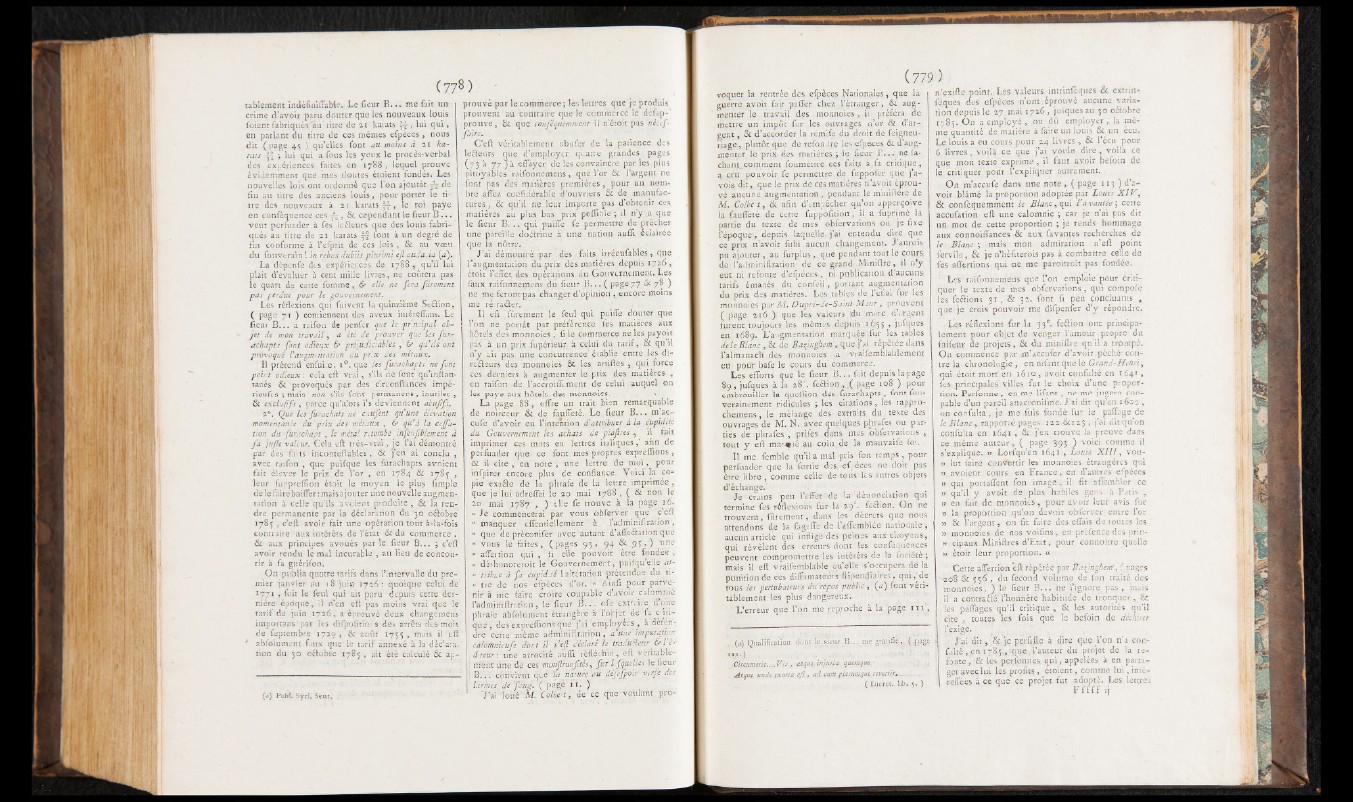 (778)
tablement indéfiniſſable. Le ſieur B... me fait un
crime d'avoir paru douter que les nouveaux louis
fuſſent fabriqués au titre de 21 karats, lui qui,
en parlant du titre de ces mêmes eſpèces, nous
dit (page 45) qu'elles ſont au moins à 21 ka-
rats; lui qui a ſous les yeux le procès-verbal
des expériences faites en 1788, lequel prouve
évidemment que mes doutes étoient fondés. Les
nouvelles lois ont ordonné que l'on ajoutât de
fin au titre des anciens louis, pour porter le ti-
tre des nouveaux à 21 karats, le roi paye
en conſéquence ces, & cependant le ſieur B...
veut perſuader à ſes lecteurs que des louis fabri-
qués au titre de 21 karats ſont à un degré de
fin conforme à l'eſprit de ces lois, & au vœu
du ſouverain! In rebus dubiis plurimi eſt audacia (a).
La dépenſe des expériences de 1788, qu'il lui
plaît d'évaluer à cent mille livres, ne coûtera pas
le quart de cette ſomme, & elle ne ſera ſûrement
pas perdue pour le gouvernement.
Les réflexions qui ſuivent la quinzième Section,
(page 71) contiennent des aveux intéreſſans. Le
ſieur B... a raiſon de penſer que le principal ob-
jet de mon travail, a été de prouver que les ſur-
achapts ſont odieux & préjudiciables, & qu'ils ont
provoqué l'augmentation du prix des métaux.
Il prétend enſuite, 1°. que les ſurachapts ne ſont
point odieux: cela eſt vrai, s'ils ne ſont qu'inſtan-
tanés & provoqués par des circonſtances impé-
rieuſes; mais non s'ils ſont permanens, inutiles,
& excluſifs, parce qu'alors ils deviennent abuſifs.
2°. Que les ſurachats ne cauſent qu'une élévation
momentanée du prix des métaux, & qu'à la ceſſa-
tion du ſurachapt, le métal retombe inſenſiblement à
ſa juſte valeur. Cela eſt très-vrai, je l'ai démontré
par des faits inconteſtables, & j'en ai conclu,
avec raiſon, que puiſque les ſurachapts avoient
fait élever le prix de l'or, en 1784 & 1785,
leur ſuppreſſion étoit le moyen le plus ſimple
de le faire baiſſer: mais ajouter une nouvelle augmen-
tation à celle qu'ils avoient produite, & la ren-
dre permanente par la déclaration du 30 octobre
1785, c'eſt avoir fait une opération tout à-la-fois
contraire aux intérêts de l'état & du commerce,
& aux principes avoués par le ſieur B...; c'eſt
avoir rendu le mal incurable, au lieu de concou-
rir à ſa guériſon.
On publia quatre tarifs dans l'intervalle du pre-
mier janvier au 18 juin 1726: quoique celui de
1771, ſoit le ſeul qui ait paru depuis cette der-
nière époque, il n'en eſt pas moins vrai que le
tarif de juin 1726, a éprouvé deux changemens
importans par les diſpoſitions des arrêts des mois
de ſeptembre 1729, & août 1755, mais il eſt
abſolument faux que le tarif annexé à la déclara-
tion du 30 octobre 1785, ait été calculé & ap-
(a) Publ. Syri. Sent.
prouvé par le commerce; les lettres que je produis
prouvent au contraire que le commerce le déſap-
prouve, & que conſéquemment il n'étoit pas néceſ-
ſaire.
C'eſt véritablement abuſer de la patience des
lecteurs que d'employer quatre grandes pages
(73 à 77) à eſſayer de les convaincre par les plus
pitoyables raiſonnemens, que l'or & l'argent ne
ſont pas des matières premières, pour un nom-
bre aſſez conſidérable d'ouvriers & de manufac-
tures, & qu'il ne leur importe pas d'obtenir ces
matières au plus bas prix poſſible; il n'y a que
le ſieur B... qui puiſſe ſe permettre de prêcher
une pareille doctrine à une nation auſſi éclairée
que la nôtre.
J'ai démontré par des faits irrécuſables, que
l'augmentation du prix des matières depuis 1726,
étoit l'effet des opérations du Gouvernement. Les
faux raiſonnemens du ſieur B... (page 77 & 78)
ne me feront pas changer d'opinion, encore moins
me rétracter.
Il eſt ſûrement le ſeul qui puiſſe douter que
l'on ne portât par préférence les matières aux
hôtels des monnoies, ſi le commerce ne les payoit
pas à un prix ſupérieur à celui du tarif, & qu'il
n'y ait pas une concurrence établie entre les di-
recteurs des monnoies & les artiſtes, qui force
ces derniers à augmenter le prix des matières,
en raiſon de l'accroiſſement de celui auquel on
les paye aux hôtels des monnoies.
La page 88, offre un trait bien remarquable
de noirceur & de fauſſeté. Le ſieur B... m'ac-
cuſe d'avoir eu l'intention d'attribuer à la cupidité
du Gouvernement les achats de piaſtres, il fait
imprimer ces mots en lettres italiques, afin de
perſuader que ce ſont mes propres expreſſions,
& il cite, en note, une lettre de moi, pour
inſpirer encore plus de confiance. Voici la co-
pie exacte de la phraſe de la lettre imprimée,
que je lui adreſſai le 20 mai 1788, (& non le
20 mai 1787,) elle ſe trouve à la page 26.
» Je commencerai par vous obſerver que c'eſt
» manquer eſſentiellement à l'adminiſtration,
» que de préconiſer avec autant d'affectation que
» vous le faites, (pages 93, 94 & 95,) une
» aſſertion qui, ſi elle pouvoit être fondée,
» déshonoreroit le Gouvernement, puiſqu'elle at-
» tribue à ſa cupidité l'altération prétendue du ti-
» tre de nos eſpèces d'or. » Ainſi pour parve-
nir à me faire croire coupable d'avoir calomnié
l'adminiſtration, le ſieur B... oſe extraire d'une
phraſe abſolument étrangère à l'objet de ſa criti-
que, des expreſſions que j'ai employées, à défen-
dre cette même adminiſtration, d'une imputation
calomnieuſe dont il s'eſt déclaré le traducteur & l'é-
diteur: une atrocité auſſi réfléchie, eſt véritable-
ment une de ces monſtruoſités, ſur leſquelles le ſieur
B... convient que la nature au déſeſpoir verſe des
larmes de ſang. (page 11.)
J'ai loué M. Colbert, de ce que voulant pro-
(779)
voquer la rentrée des eſpèces Nationales, que la
guerre avoit fait paſſer chez l'étranger, & aug-
menter le travail des monnoies, il préféra de
mettre un impôt ſur les ouvrages d'or & d'ar-
gent, & d'accorder la remiſe du droit de ſeigneu-
riage, plutôt que de refondre les eſpèces & d'aug-
menter le prix des matières; le ſieur B... ne ſa-
chant comment ſoumettre ces faits à ſa critique,
a cru pouvoir ſe permettre de ſuppoſer que j'a-
vois dit, que le prix de ces matières n'avoit éprou-
vé aucune augmentation, pendant le miniſtère de
M. Colbert, & afin d'empêcher qu'on apperçoive
la fauſſeté de cette ſuppoſition, il a ſupprimé la
partie du texte de mes obſervations où je fixe
l'époque, depuis laquelle j'ai entendu dire que
ce prix n'avoit ſubi aucun changement. J'aurois
pu ajouter, au ſurplus, que pendant tout le cours
de l'adminiſtration de ce grand Miniſtre, il n'y
eut ni refonte d'eſpèces, ni publication d'aucuns
tarifs émanés du conſeil, portant augmentation
du prix des matières. Les tables de l'eſſai ſur les
monnoies par M. Dupré-de-Saint Maur, prouvent
(page 216) que les valeurs du marc d'argent
furent toujours les mêmes depuis 1655, juſques
en 1689. L'augmentation marquée ſur les tables
de le Blanc, & de Bazinghem, que j'ai répétée dans
l'almanach des monnoies a vraiſemblablement
eu pour baſe le cours du commerce.
Les efforts que le ſieur B... fait depuis la page
89, juſques à la 28e. ſection, (page 108) pour
embrouiller la queſtion des ſurachapts, ſont ſou-
verainement ridicules; les citations, les rappro-
chemens, le mélange des extraits du texte des
ouvrages de M. N. avec quelques phraſes ou par-
ties de phraſes, priſes dans mes obſervations,
tout y eſt marqué au coin de la mauvaiſe foi.
Il me ſemble qu'il a mal pris ſon temps, pour
perſuader que la ſortie des eſpèces ne doit pas
être libre, comme celle de tous les autres objets
d'échange.
Je crains peu l'effet de la dénonciation qui
termine ſes réflexions ſur la 29e. ſection. On ne
trouvera, ſûrement, dans les décrets que nous
attendons de la ſageſſe de l'aſſemblée nationale,
aucun article qui inflige des peines aux citoyens,
qui révèlent des erreurs dont les conſéquences
peuvent compromettre les intérêts de la ſociété;
mais il eſt vraiſemblable qu'elle s'occupera de la
punition de ces diffamateurs ſtipendiaires, qui, de
tous les perturbateurs du repos public, (a) ſont véri-
tablement les plus dangereux.
L'erreur que l'on me reproche à la page 111,
(a) Qualification dont le ſieur B... me gratifie, (page
Circumretit... Vis, atque injuria quemque
Atque unde exorta eſt, ad eum plerumque revertit.
(Lucret. lib. 5.)
n'exiſte point. Les valeurs intrinſèques & extrin-
ſèques des eſpèces n'ont éprouvé aucune varia-
tion depuis le 27 mai 1726, juſques au 30 octobre
1785. On a employé, ou dû employer, la mê-
me quantité de matière à faire un louis & un écu.
Le louis a eu cours pour 24 livres, & l'écu pour
6 livres, voilà ce que j'ai voulu dire, voilà ce
que mon texte exprime, il faut avoir beſoin de
le critiquer pour l'expliquer autrement.
On m'accuſe dans une note, (page 113) d'a-
voir blâmé la proportion adoptée par Louis XIV,
& conſéquemment le Blanc, qui l'a vantée; cette
accuſation eſt une calomnie; car je n'ai pas dit
un mot de cette proportion; je rends hommage
aux connoiſſances & aux ſavantes recherches de
le Blanc; mais mon admiration n'eſt point
ſervile, & je n'héſiterois pas à combattre celle de
ſes aſſertions qui ne me paroîtroit pas fondée.
Les raiſonnemens que l'on emploie pour criti-
quer le texte de mes obſervations, qui compoſe
les ſections 31, & 32, ſont ſi peu concluans,
que je crois pouvoir me diſpenſer d'y répondre.
Les réflexions ſur la 33e. ſection ont principa-
lement pour objet de venger l'amour propre du
faiſeur de projets, & du miniſtre qu'il a trompé.
On commence par m'accuſer d'avoir péché con-
tre la chronologie, en diſant que le Grand-Henri,
qui étoit mort en 1610, avoit conſulté en 1641,
ſes principales villes ſur le choix d'une propor-
tion. Perſonne, en me liſant, ne me jugera cou-
pable d'un pareil anacroniſme. J'ai dit qu'en 1602,
on conſulta, je me ſuis fondé ſur le paſſage de
le Blanc, rapporté pages 122 & 123, j'ai dit qu'on
conſulta en 1641, & j'en trouve la preuve dans
ce même auteur, (page 393) voici comme il
s'explique. » Lorſqu'en 1641, Louis XIII, vou-
» lut faire convertir les monnoies étrangères qui
» avoient cours en France, en d'autres eſpèces
» qui portaſſent ſon image, il fit aſſembler ce
» qu'il y avoit de plus habiles gens à Paris,
» en fait de monnoies, pour avoir leur avis ſur
» la proportion qu'on devoit obſerver entre l'or
» & l'argent, on fit faire des eſſais de toutes les
» monnoies de nos voiſins, en préſence des prin-
» cipaux Miniſtres d'Etat, pour connoître quelle
» étoit leur proportion. «
Cette aſſertion eſt répétée par Bazinghem, (pages
208 & 556, du ſecond volume de ſon traité des
monnoies,) le ſieur B... ne l'ignore pas, mais
il a contracté l'honnête habitude de tronquer, &
les paſſages qu'il critique, & les autorités qu'il
cite, toutes les fois que le beſoin de déchirer
l'exige.
J'ai dit, & je perſiſte à dire que l'on n'a con-
ſulté, en 1785, que l'auteur du projet de la re-
fonte, & les perſonnes qui, appelées à en parta-
ger avec lui les profits, étoient, comme lui, inté-
reſſées à ce que ce projet fut adopté. Les lettres
F f f f f ij